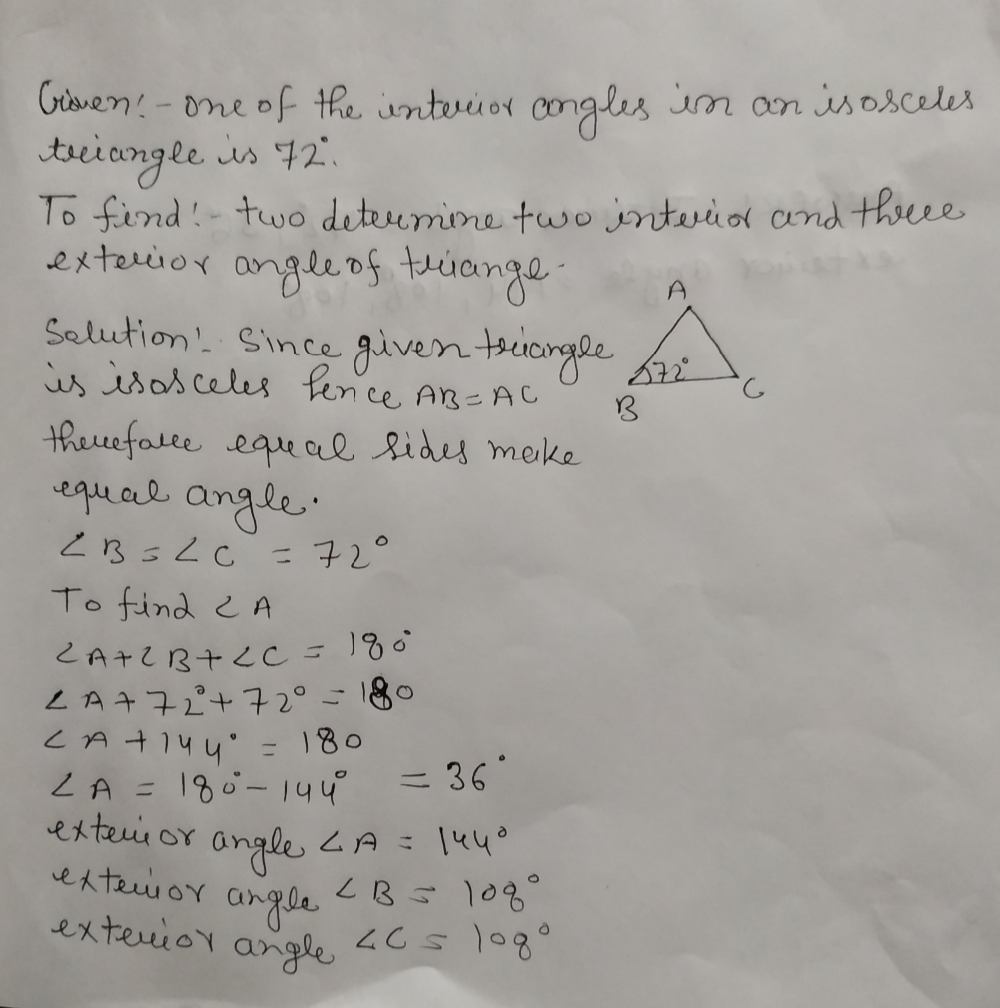 Given:- one of the interior angles in an isosceles
triangle is 72°.
To find:- two determine two interior and three
exterior angle of triange-
A
Solution:- Since given triangle
72°
is isosceles hence AB = AC
B
C
therefore equal sides make
equal angle.
∠B = ∠C = 72°
To find ∠A
∠A+∠B+∠C = 180°
∠A+72°+72° = 180
∠A+144° = 180
∠A = 180°-144° = 36°
exterior angle ∠A = 144°
exterior angle ∠B = 108°
exterior angle ∠C = 108°